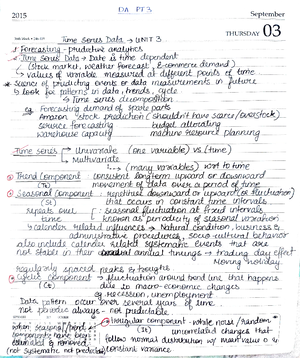 DA PT 3
2015
September
THURSDAY 03
Time Series Data → UNIT 3
Forecasting - predictive analytics
Time Series Data → Data is time dependent
(stock market, weather forecast, E-commerce demand)
↳ values of variable measured at different points of time
Science of predicting events or data measurements in future
↳ look for patterns in data, trends, cycle
↳ Time series decomposition
eg. Forecasting demand of spare parts
Amazon stock prediction (shouldn't have scarce/overstock)
service forecasting budget allocating
warehouse capacity machine resource planning
Time series → Univariate (one variable) vs (time)
→ Multivariate
↳ (many variables) wrt to time
Trend Component : consistent longterm upward or downward
(Tt) movement of data over a period of time.
Seasonal Component : repetitive downward or upward (or fluctuation)
(St) that occurs in constant time intervals
repeats over : seasonal fluctuation at fixed intervals
time known as periodicity of seasonal variation
↳ calender related influences → Natural condition, business &
administrative procedures, socio cultural behavior
also include calender related systematic events that are
not stable in their annual timings → trading day effect
→ Moving holiday
regularly spaced peaks & troughs
Cyclic Component → fluctuation around trend line that happens
(Ct) due to macro-economic changes
eg recession, unemployment
Data pattern occur over several years of time
not periodic always - not predictable
Irregular component - white noise / random
(It) uncorrelated changes that
follow normal distribution w/ mean value 0 &
constant variance
when seasonal / trend
components have been
estimated & removed
(not systematic not predictable)